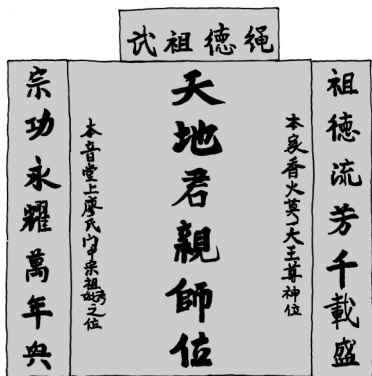 绳德祖武
祖德流芳千載盛
本家香火莫一大王尊神位
天地君親師位
本音堂上廖氏門中宗祖考妣之位
宗功永耀萬年興